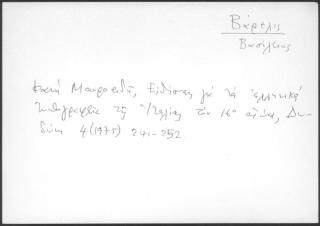 Βάρελις
Βασίλειος
Φανή Μαυροειδή, Ειδήσεις για τα ελληνικά
τυπογραφεία της Ιταλίας τον 16ο αιώνα, Δω-
δώνη 4 (1975) 241-252